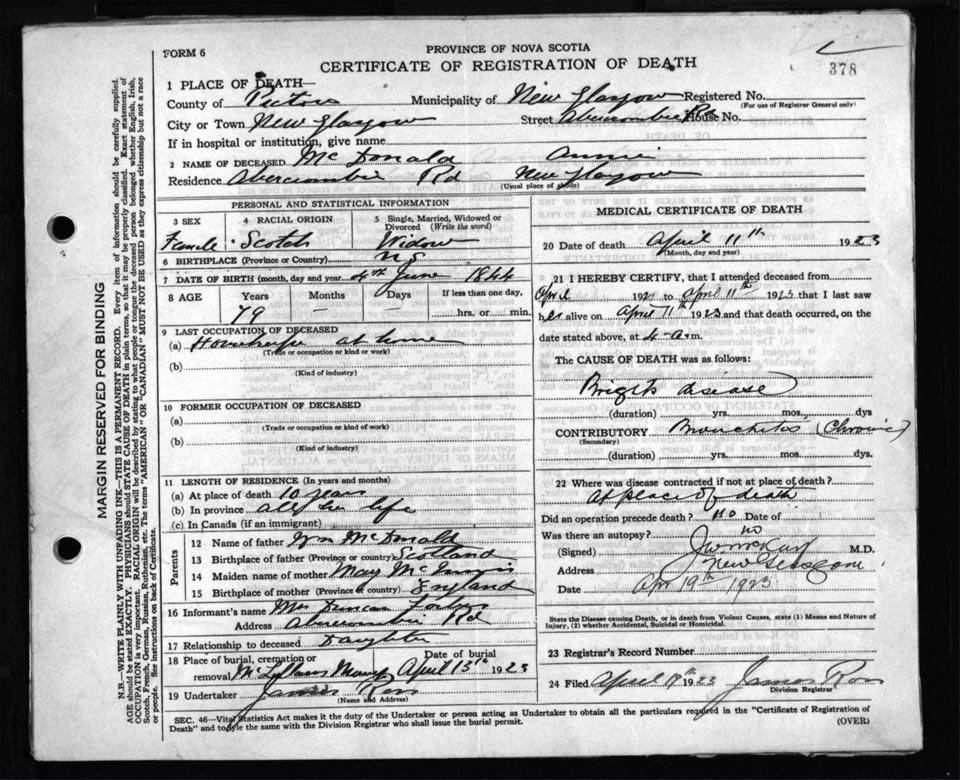 378
FORM 6
PROVINCE OF NOVA SCOTIA
CERTIFICATE OF REGISTRATION OF DEATH
1 PLACE OF DEATH—
County of Pictou Municipality of New Glasgow Registered No.
(For use of Registrar General only)
City or Town New Glasgow Street Abercrombie Rd House No.
If in hospital or institution, give name
2 NAME OF DECEASED McDonald Annie
Residence Abercrombie Rd New Glasgow
(Usual place of abode)
PERSONAL AND STATISTICAL INFORMATION
3 SEX 4 RACIAL ORIGIN 5 Single, Married, Widowed or Divorced (Write the word)
Female Scotch Widow
6 BIRTHPLACE (Province or Country) N S
7 DATE OF BIRTH (month, day and year) 4th June 1844
8 AGE Years Months Days If less than one day,
79 hrs. or min.
9 LAST OCCUPATION OF DECEASED
(a) Housekeeper at home
(Trade or occupation or kind or work)
(b)
(Kind of industry)
10 FORMER OCCUPATION OF DECEASED
(a)
(Trade or occupation or kind of work)
(b)
(Kind of industry)
11 LENGTH OF RESIDENCE (In years and months)
(a) At place of death 10 years
(b) In province all her life
(c) In Canada (if an immigrant)
Parents
12 Name of father Wm McDonald
13 Birthplace of father (Province or country) Scotland
14 Maiden name of mother Mary
15 Birthplace of mother (Province or country) England
16 Informant's name Mrs Duncan
Address Abercrombie Rd
17 Relationship to deceased Daughter
18 Place of burial, cremation or removal Date of burial
April 13th 1923
19 Undertaker James Ross
(Name and Address)
MEDICAL CERTIFICATE OF DEATH
20 Date of death April 11th 1923
(Month, day and year)
21 I HEREBY CERTIFY, that I attended deceased from
April 192 to April 11th 1923 that I last saw
her alive on April 11th 1923 and that death occurred, on the
date stated above, at 4 a.m.
The CAUSE OF DEATH was as follows:
Brights disease
(duration) yrs. mos. dys
CONTRIBUTORY Bronchitis (Chronic)
(Secondary)
(duration) yrs. mos. dys.
22 Where was disease contracted if not at place of death?
At place of death
Did an operation precede death? no Date of
Was there an autopsy? no
(Signed) M.D.
Address New Glasgow
Date Apr 19th 1923
State the Disease causing Death, or in death from Violent Causes, state (1) Means and Nature of
Injury, (2) whether Accidental, Suicidal or Homicidal.
23 Registrar's Record Number
24 Filed April 1923 James Ross
Division Registrar
SEC. 46—Vital Statistics Act makes it the duty of the Undertaker or person acting as Undertaker to obtain all the particulars required in the "Certificate of Registration of
Death" and to file the same with the Division Registrar who shall issue the burial permit.
(OVER)
MARGIN RESERVED FOR BINDING
N.B.—WRITE PLAINLY WITH UNFADING INK—THIS IS A PERMANENT RECORD. Every item of information should be carefully supplied.
AGE should be stated EXACTLY. PHYSICIANS should STATE CAUSE OF DEATH in plain terms, so that it may be properly classified. Exact statement of
OCCUPATION is very important. RACIAL ORIGIN will be described by stating to what people or tongue the deceased person belonged whether English, Irish,
Scotch, French, German, Russian, Ruthenian, etc. The terms "AMERICAN" OR "CANADIAN" MUST NOT BE USED as they express citizenship but not a race
or people. See instructions on back of Certificate.